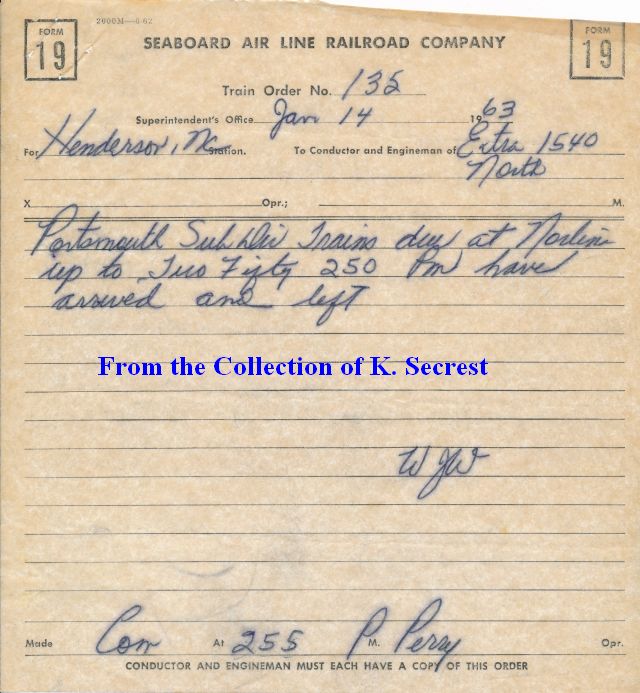 FORM 19
2000M—6-62
FORM 19
SEABOARD AIR LINE RAILROAD COMPANY
Train Order No. 135
Superintendent's Office Jan 14 1963
For Henderson, NC Station. To Conductor and Engineman of Extra 1540
North
X Opr.; M.
Portsmouth Sub Div Trains due at Norlina
up to Two Fifty 250 Pm have
arrived and left
From the Collection of K. Secrest
WJW
Made Com At 255 P M. Perry Opr.
CONDUCTOR AND ENGINEMAN MUST EACH HAVE A COPY OF THIS ORDER